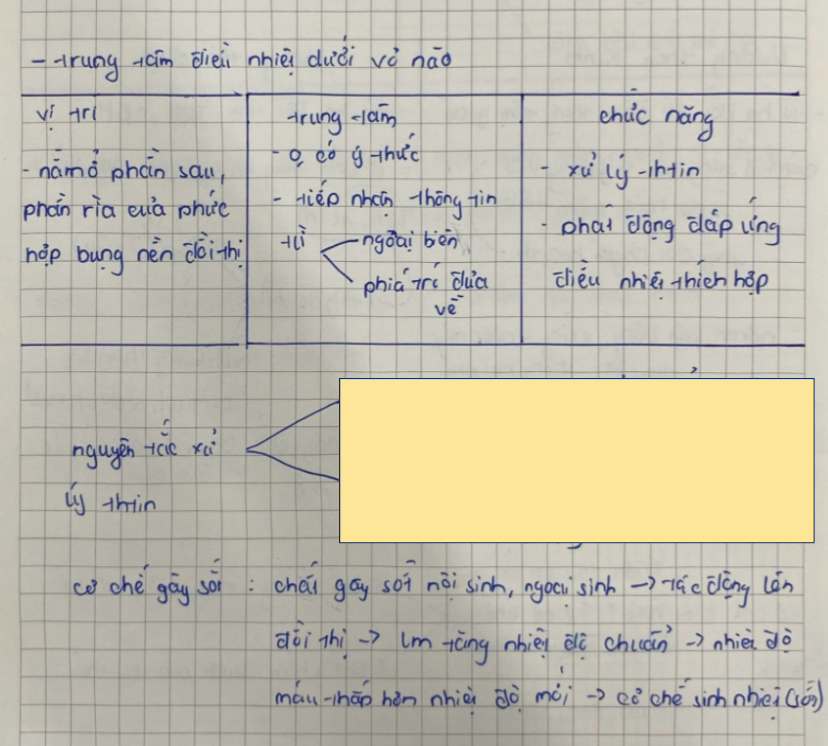 - trung tâm điều nhiệt dưới vỏ não
vị trí
- nằm ở phần sau,
phần rìa của phức
hợp bụng nền đồi thị
trung tâm
- 0 có ý thức
- tiếp nhận thông tin
từ
ngoại biên
phía trc đưa
về
chức năng
- xử lý thtin
- phát động đáp ứng
điều nhiệt thích hợp
nguyên tắc xử
lý thtin
cơ chế gây sốt : chất gây sốt nội sinh, ngoại sinh → tác động lên
đồi thị → lm tăng nhiệt độ chuẩn → nhiệt độ
máu thấp hơn nhiệt độ mới → cơ chế sinh nhiệt (sốt)